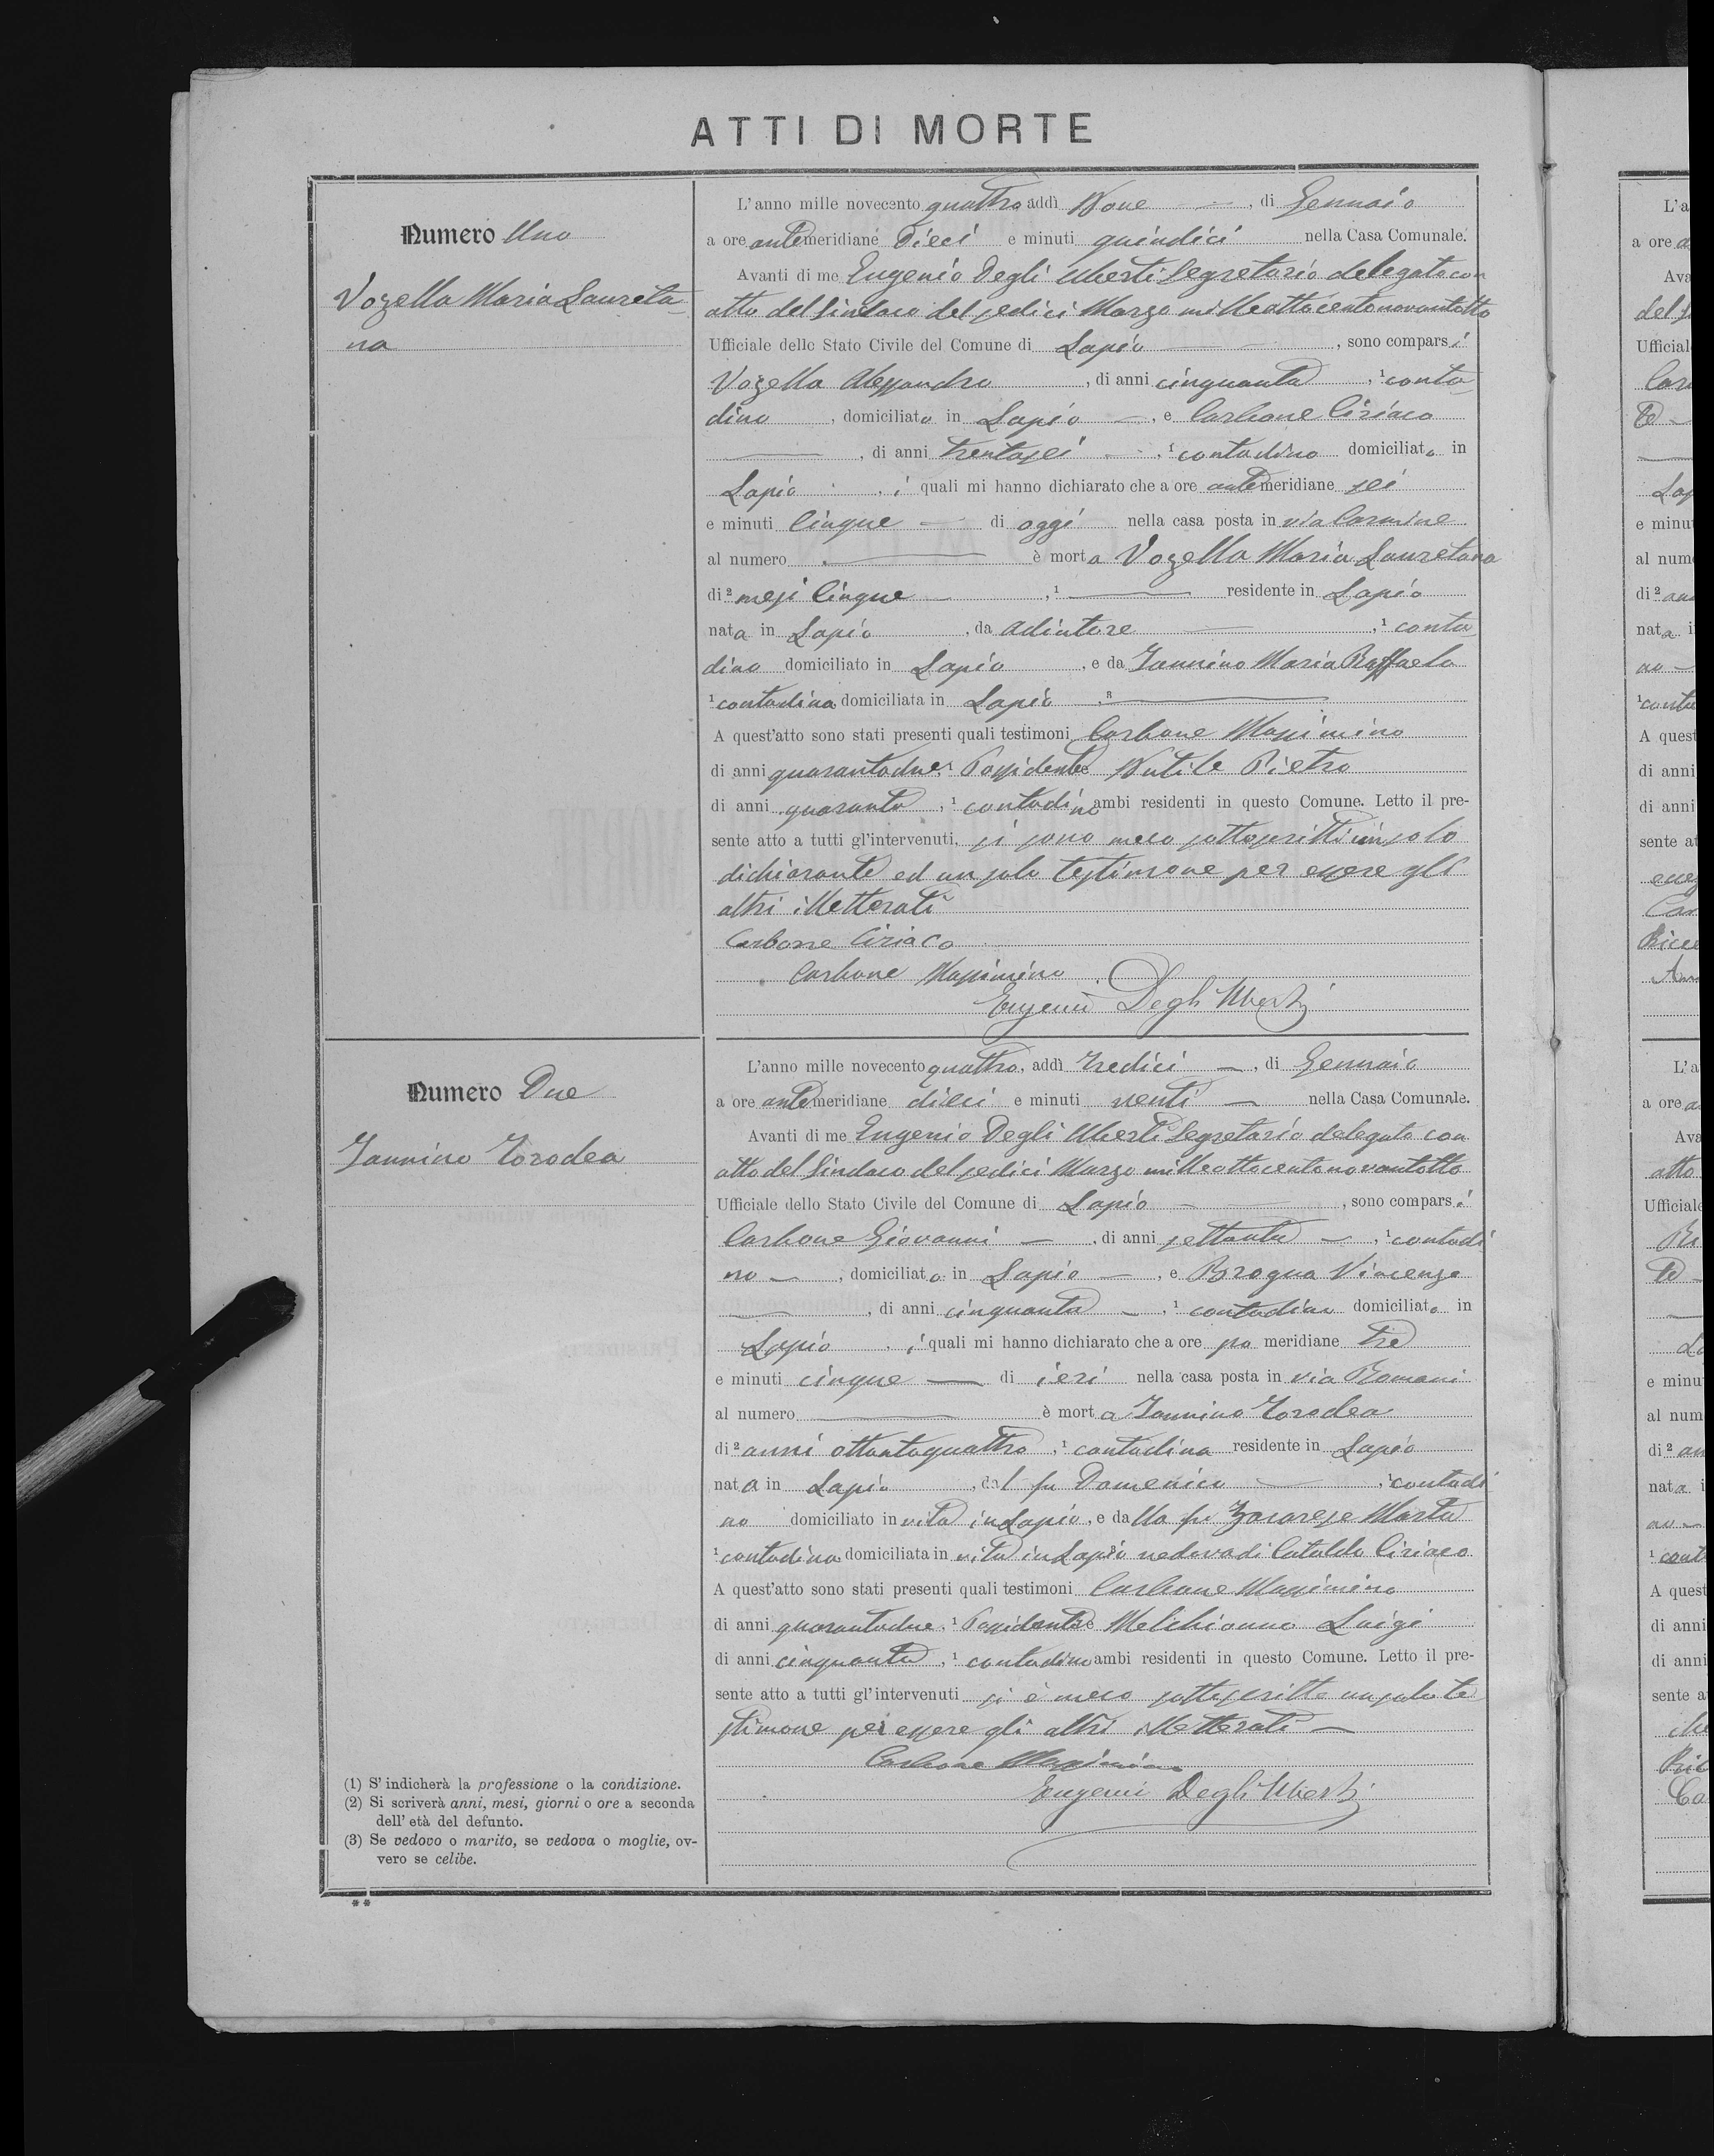 ATTI DI MORTE
Numero Uno
Vozella Maria Laureta-
na
L'anno mille novecento quattro addì Nove —, di Gennaio
a ore antemeridiane Dieci e minuti quindici nella Casa Comunale.
Avanti di me Eugenio Degli Uberti Segretario delegato con
atto del Sindaco del sedici Marzo milleottocentonovantotto
Ufficiale dello Stato Civile del Comune di Lapio —, sono comparsi
Vozella Alessandro, di anni cinquanta, ¹ conta-
dino, domiciliato in Lapio —, e Carbone Ciriaco
—, di anni trentasei —, ¹ contadino domiciliato in
Lapio, i quali mi hanno dichiarato che a ore antemeridiane sei
e minuti Cinque — di oggi nella casa posta in via Carmine
al numero — è morta Vozella Maria Lauretana
di ² mesi Cinque —, ¹ — residente in Lapio
nata in Lapio, da Adiutore —, ¹ conta-
dino domiciliato in Lapio, e da Iannino Maria Raffaela
¹ contadina domiciliata in Lapio ³ —
A quest'atto sono stati presenti quali testimoni Carbone Massimino
di anni quarantadue, ¹ Possidente Nutile Pietro
di anni quaranta, ¹ contadino ambi residenti in questo Comune. Letto il pre-
sente atto a tutti gl'intervenuti, si sono meco sottoscritti un solo
dichiarante ed un solo testimone per essere gli
altri illetterati
Carbone Ciriaco
Carbone Massimino
Eugenio Degli Uberti
Numero Due
Iannino Torodea
L'anno mille novecento quattro, addì Tredici —, di Gennaio
a ore antemeridiane dieci e minuti venti — nella Casa Comunale.
Avanti di me Eugenio Degli Uberti Segretario delegato con
atto del Sindaco del sedici Marzo milleottocentonovantotto
Ufficiale dello Stato Civile del Comune di Lapio —, sono comparsi
Carbone Giovanni —, di anni settanta —, ¹ contadi
no —, domiciliato in Lapio —, e Brogna Vincenzo
—, di anni cinquanta —, ¹ contadino domiciliato in
Lapio, i quali mi hanno dichiarato che a ore po meridiane tre
e minuti cinque — di ieri nella casa posta in via Romani
al numero — è morta Iannino Torodea
di ² anni ottantaquattro, ¹ contadina residente in Lapio
nata in Lapio, dal fu Domenico —, ¹ contadi
no domiciliato in vita in Lapio, e dalla fu Zaccarese Marta
¹ contadina domiciliata in vita in Lapio vedova di Cataldo Ciriaco
A quest'atto sono stati presenti quali testimoni Carbone Massimino
di anni quarantadue, ¹ Possidente Melchionno Luigi
di anni cinquanta, ¹ contadino ambi residenti in questo Comune. Letto il pre-
sente atto a tutti gl'intervenuti si è meco sottoscritto un solo te
stimone per essere gli altri illetterati —
Carbone Massimino
Eugenio Degli Uberti
(1) S'indicherà la professione o la condizione.
(2) Si scriverà anni, mesi, giorni o ore a seconda
dell'età del defunto.
(3) Se vedovo o marito, se vedova o moglie, ov-
vero se celibe.
**